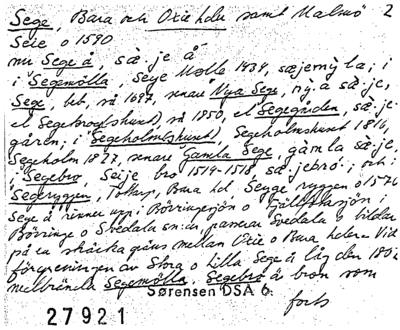 Sege, Bara och Oxie hder samt Malmö 2
Seie o 1590
nu Sege å, sæ·je å
i Segemölla, Seye Mølle 1434, sæjemýla; i
Sege, beb, nä 1697, senare Nya Sege, nýa sæ·je,
el Segekrog(shuset) nä 1850, el Segegården, sæ·je-
gåren; i Segeholm(shuset), Segeholmshuset 1816,
Segeholm 1827, senare Gamla Sege, gamla sæ·je,
i Segebro, Seije bro 1514-1518, sæjebró; och i
Segeryggen, Tottarp, Bara hd, Segge ryggen o 1570
Sege å rinner upp i Börringesjön o Fjällfotasjön i
Börringe o Svedala snar passerar Svedala o bildar
på en sträcka gräns mellan Oxie o Bara hder. Vid
förgreningen av Stora o Lilla Sege å låg den 180
nedbrända Segemölla, Segebro är bron som
Sørensen DSA 6.
forts
27921